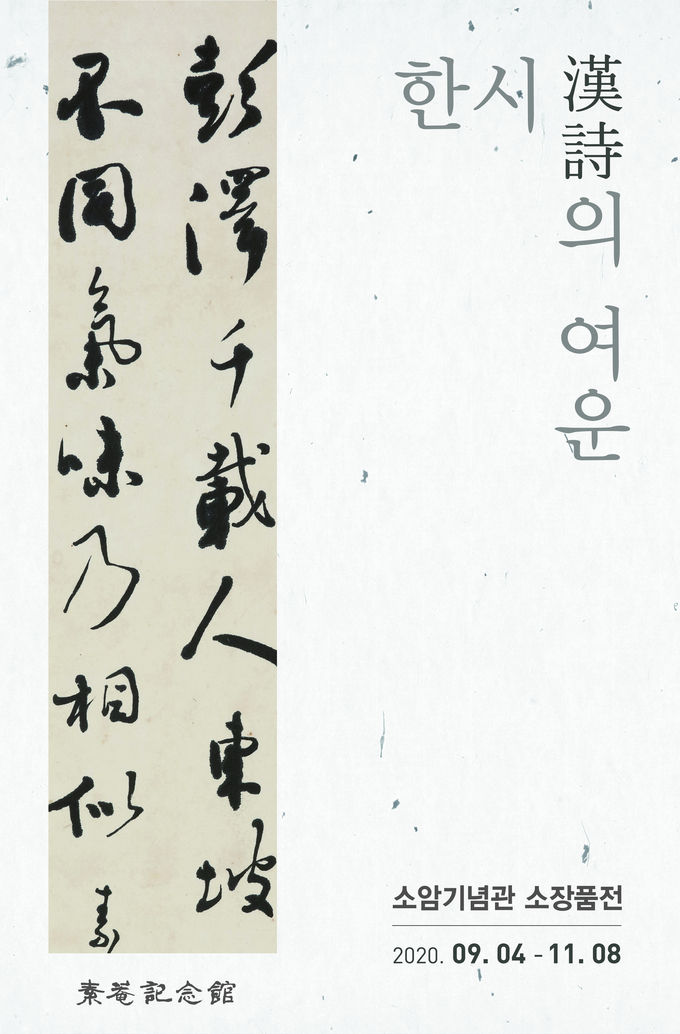 한시
漢詩의 여운
彭澤千載人東坡
不同氣味乃相似 素
소암기념관 소장품전
2020. 09. 04 - 11. 08
素菴記念館